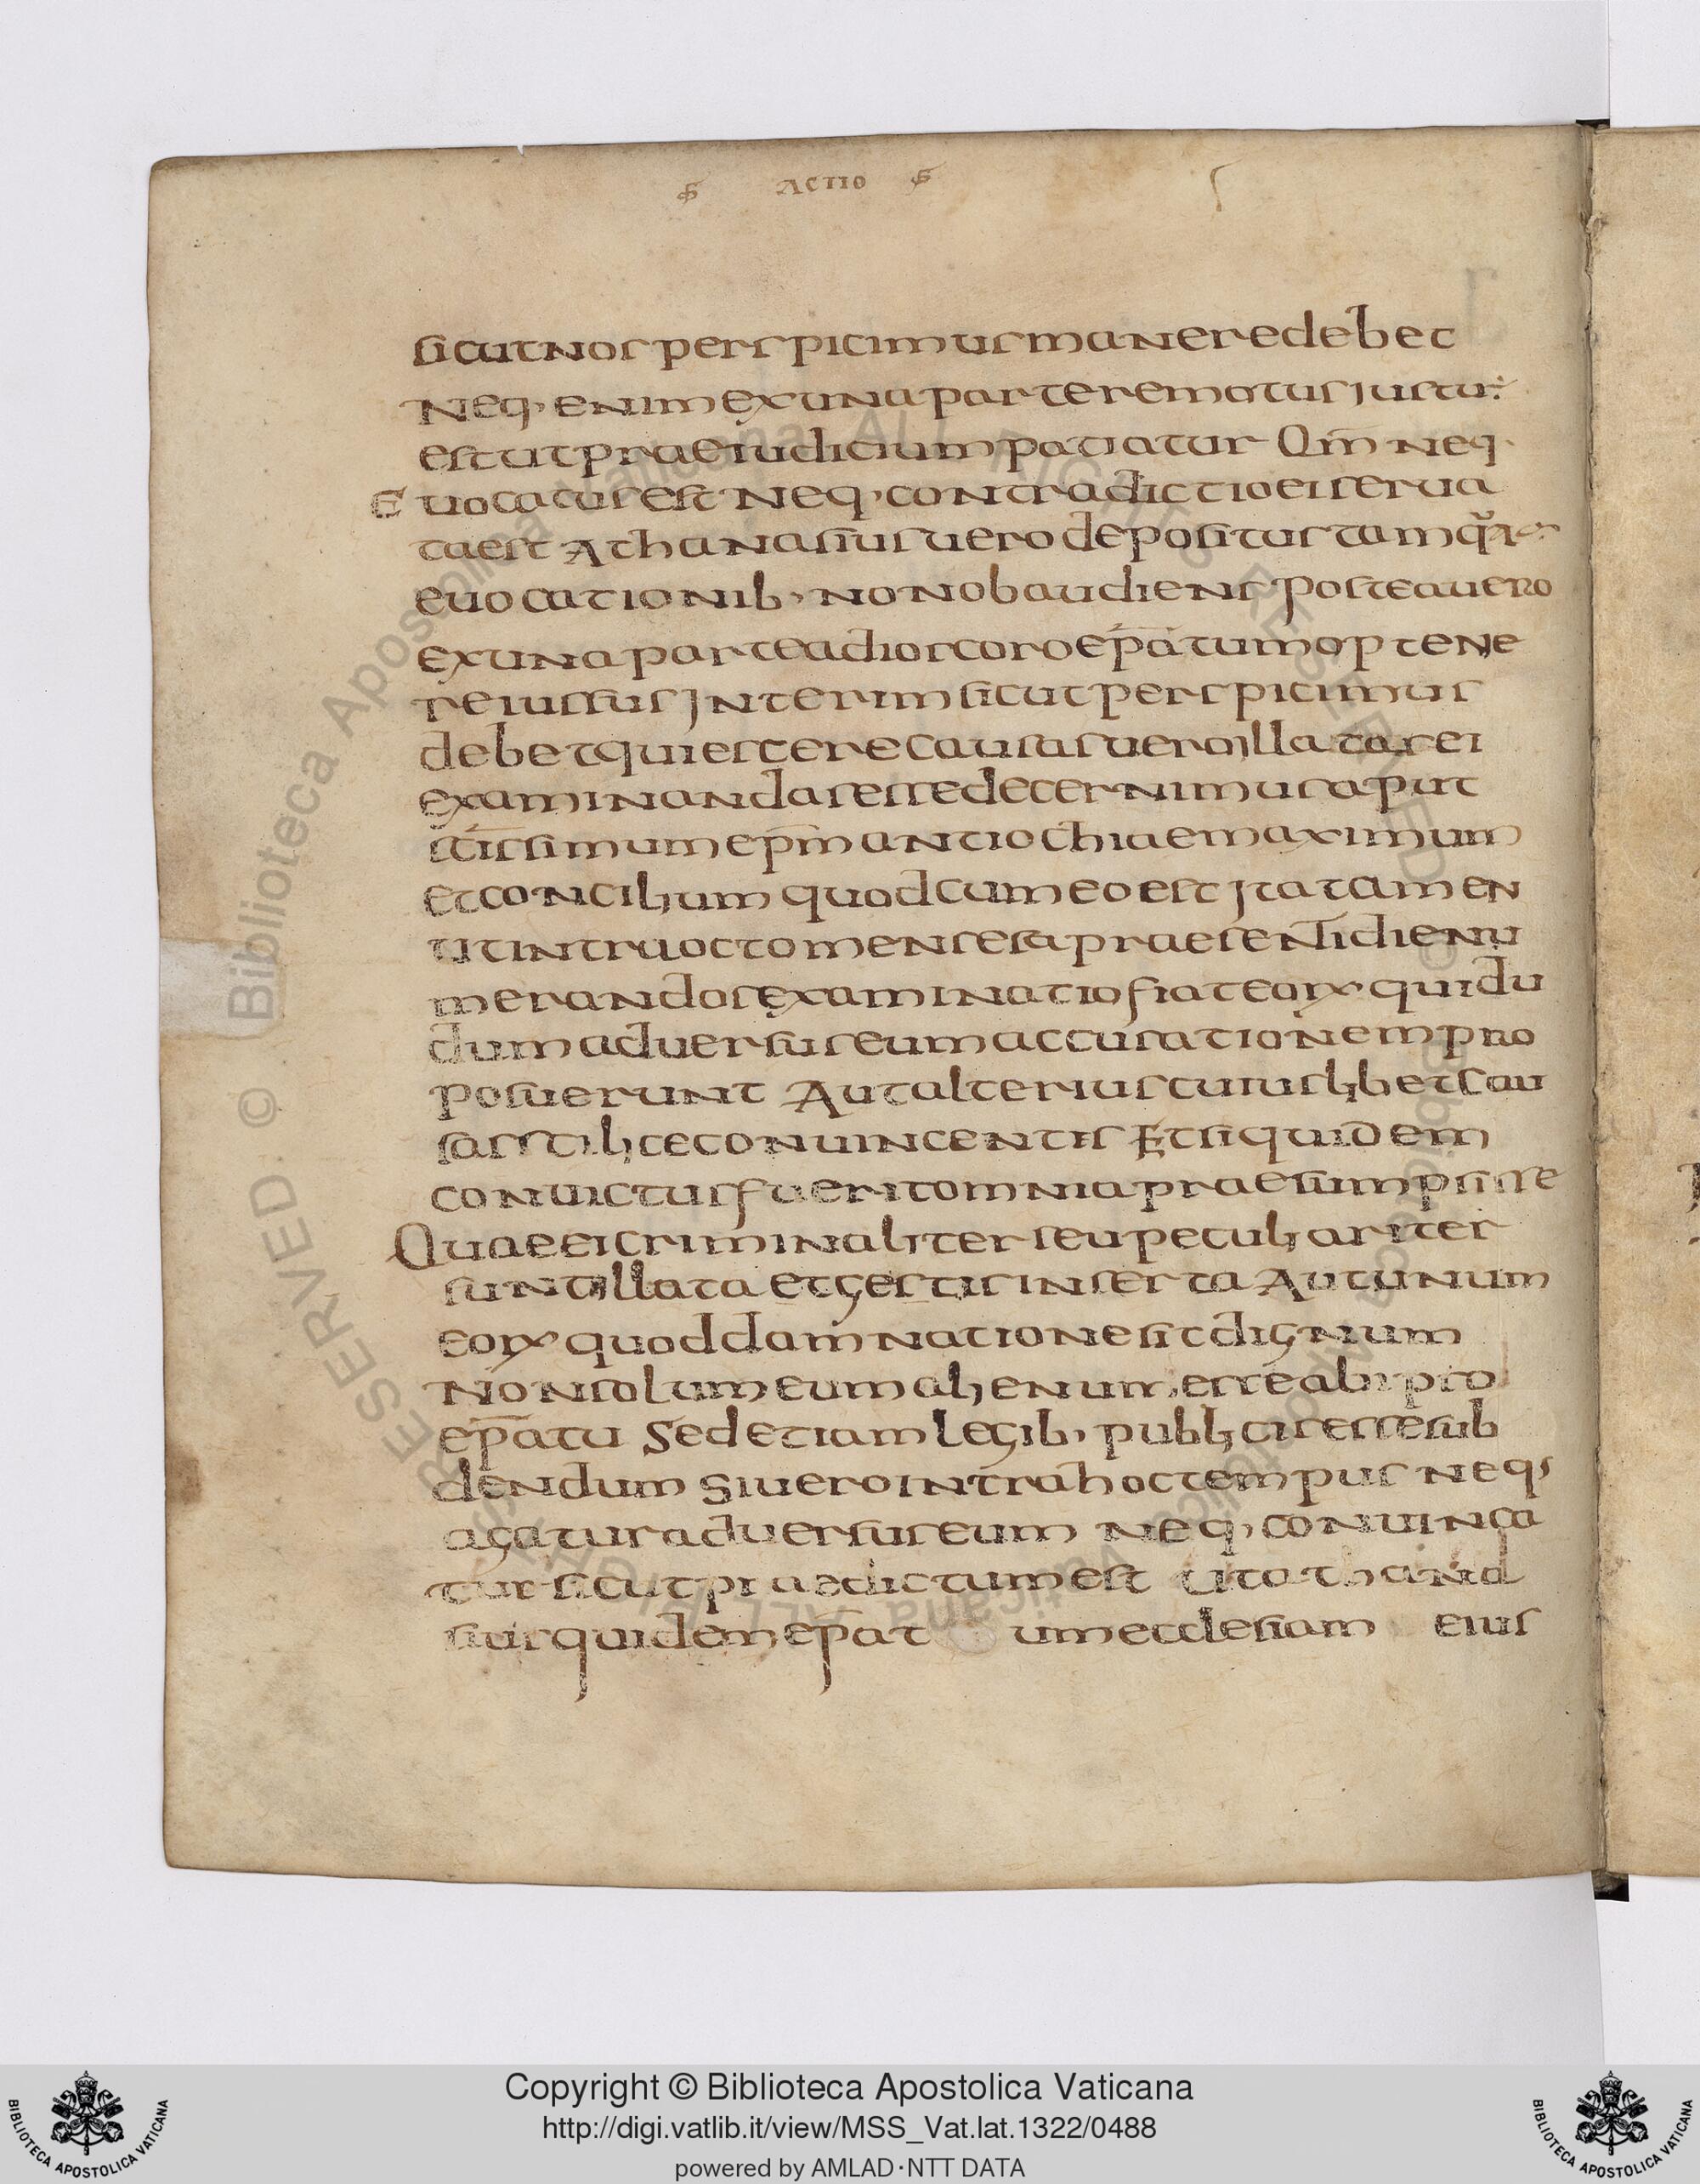 ACTIO
sicutnosperspicimusmaneredebet
Neq· enimexunaparteremotusiustus
estutpraeiudiciumpatiatur Qm̄ neq·
Euocatusest Neq· contradictioeiserua
taest Athanasiusuerodepositustamq̄
euocationib· nonobaudiens Posteauero
exunaparteadioscoroep̄atumoptene
reiussus Interimsicutperspicimus
debetquiescerecausasueroillatasei
examinandasessedecernimusaput
sc̄issimumep̄mantiochiaemaximum
etconcilium quodcumeoest Itatamen
utintraoctomensesapraesentidienu
merandosexaminatiofiateorꝝquidu
dumaduersuseumaccusationempro
posuerunt Autalteriuscuiuslibetcau
sasstiliteconuincentis Etsiquidem
conuictusfueritomniapraesumpsisse
Quaeeicriminaliterseupeculiariter
suntillata etgestisinserta Autunum
eorꝝ quoddamnationesitdignum
Nonsolumeumalienumesseabipso
ep̄atu Sedetiamlegib· publicisessesub
dendum Siuerointrahoctempus neq·
agaturaduersuseum neq· conuinca
tursicutpraedictumest Utathana
siusquidemep̄atumecclesiam eius
Copyright © Biblioteca Apostolica Vaticana
http://digi.vatlib.it/view/MSS_Vat.lat.1322/0488
powered by AMLAD·NTT DATA
BIBLIOTECA APOSTOLICA VATICANA
BIBLIOTECA APOSTOLICA VATICANA